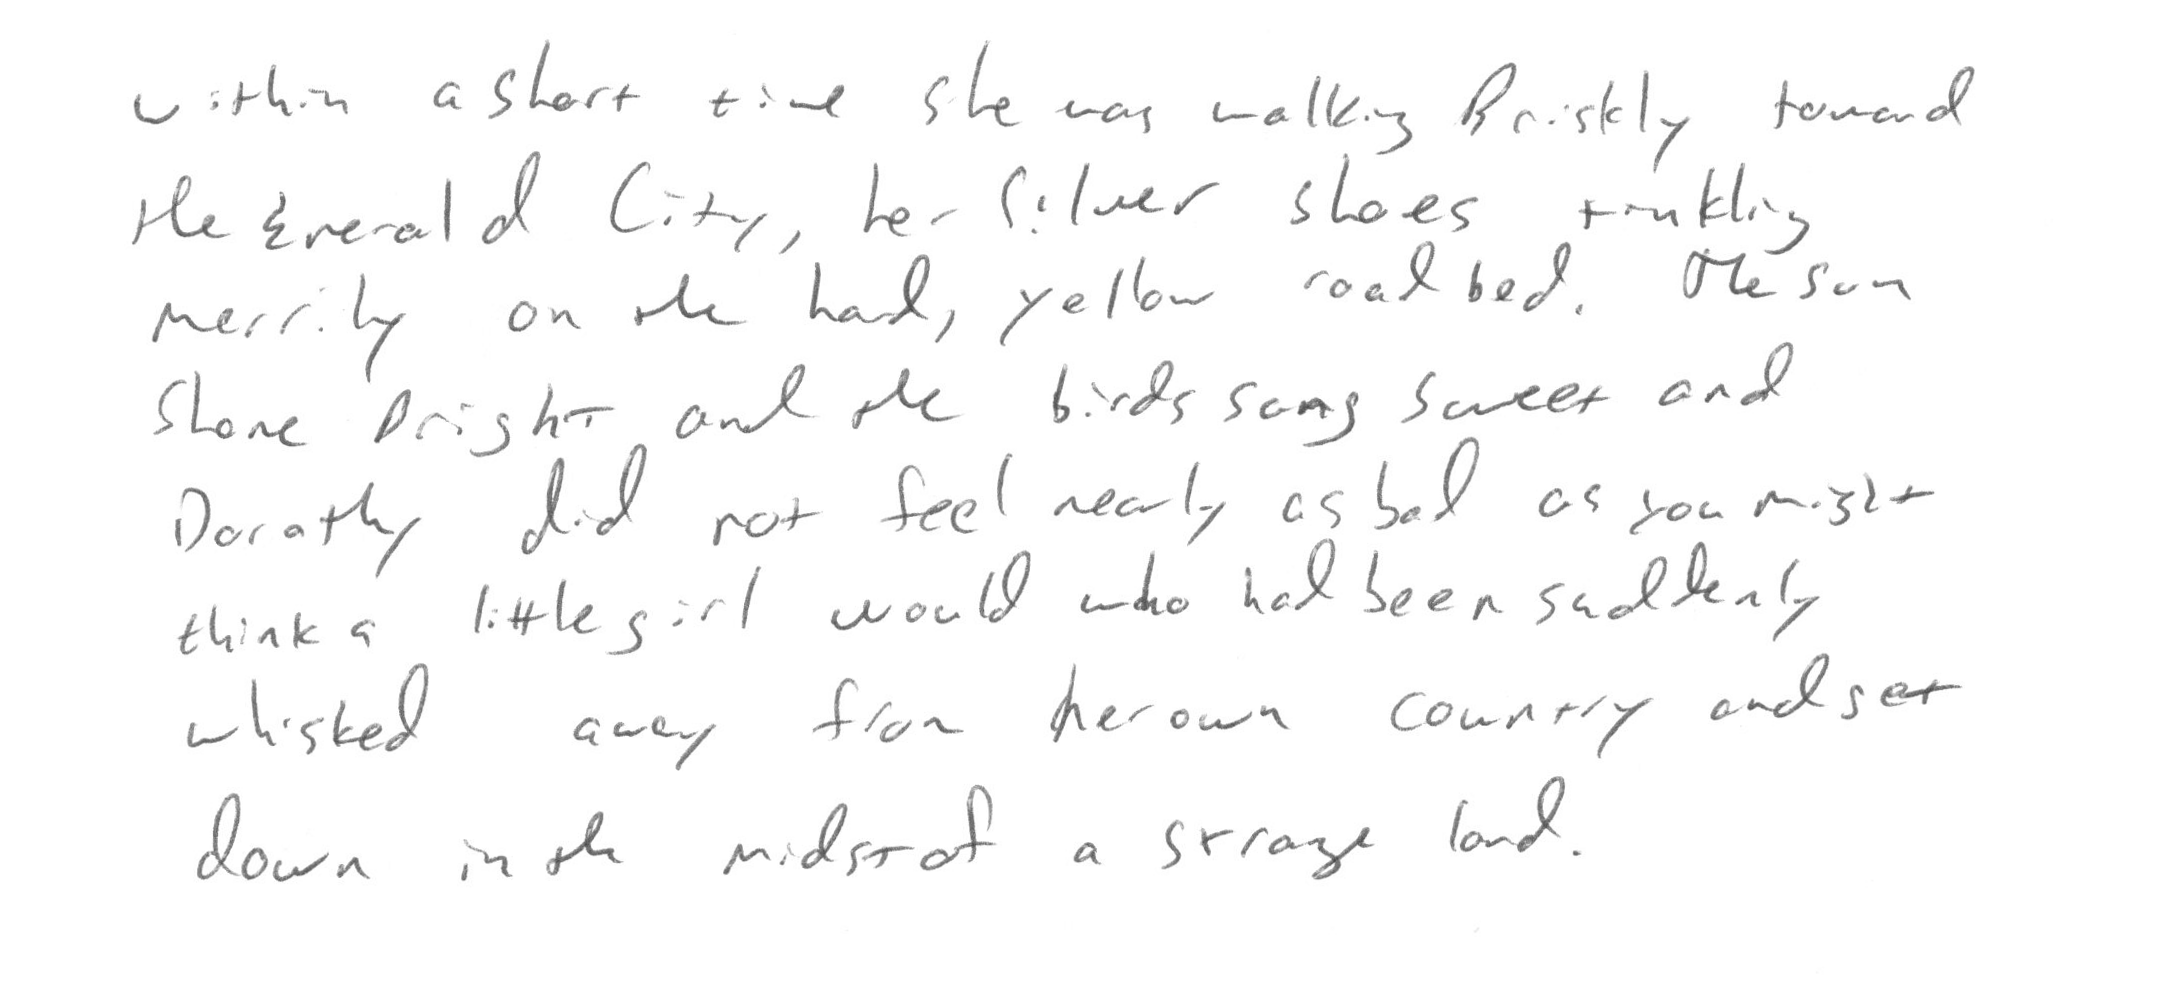 within a short time she was walking Briskly toward
the Emerald City, her Silver shoes tinkling
merrily on the hard, yellow road bed. The sun
Shone Bright and the birds sang sweet and
Dorothy did not feel nearly as bad as you might
think a little girl would who had been suddenly
whisked away from her own country and set
down in the midst of a strange land.